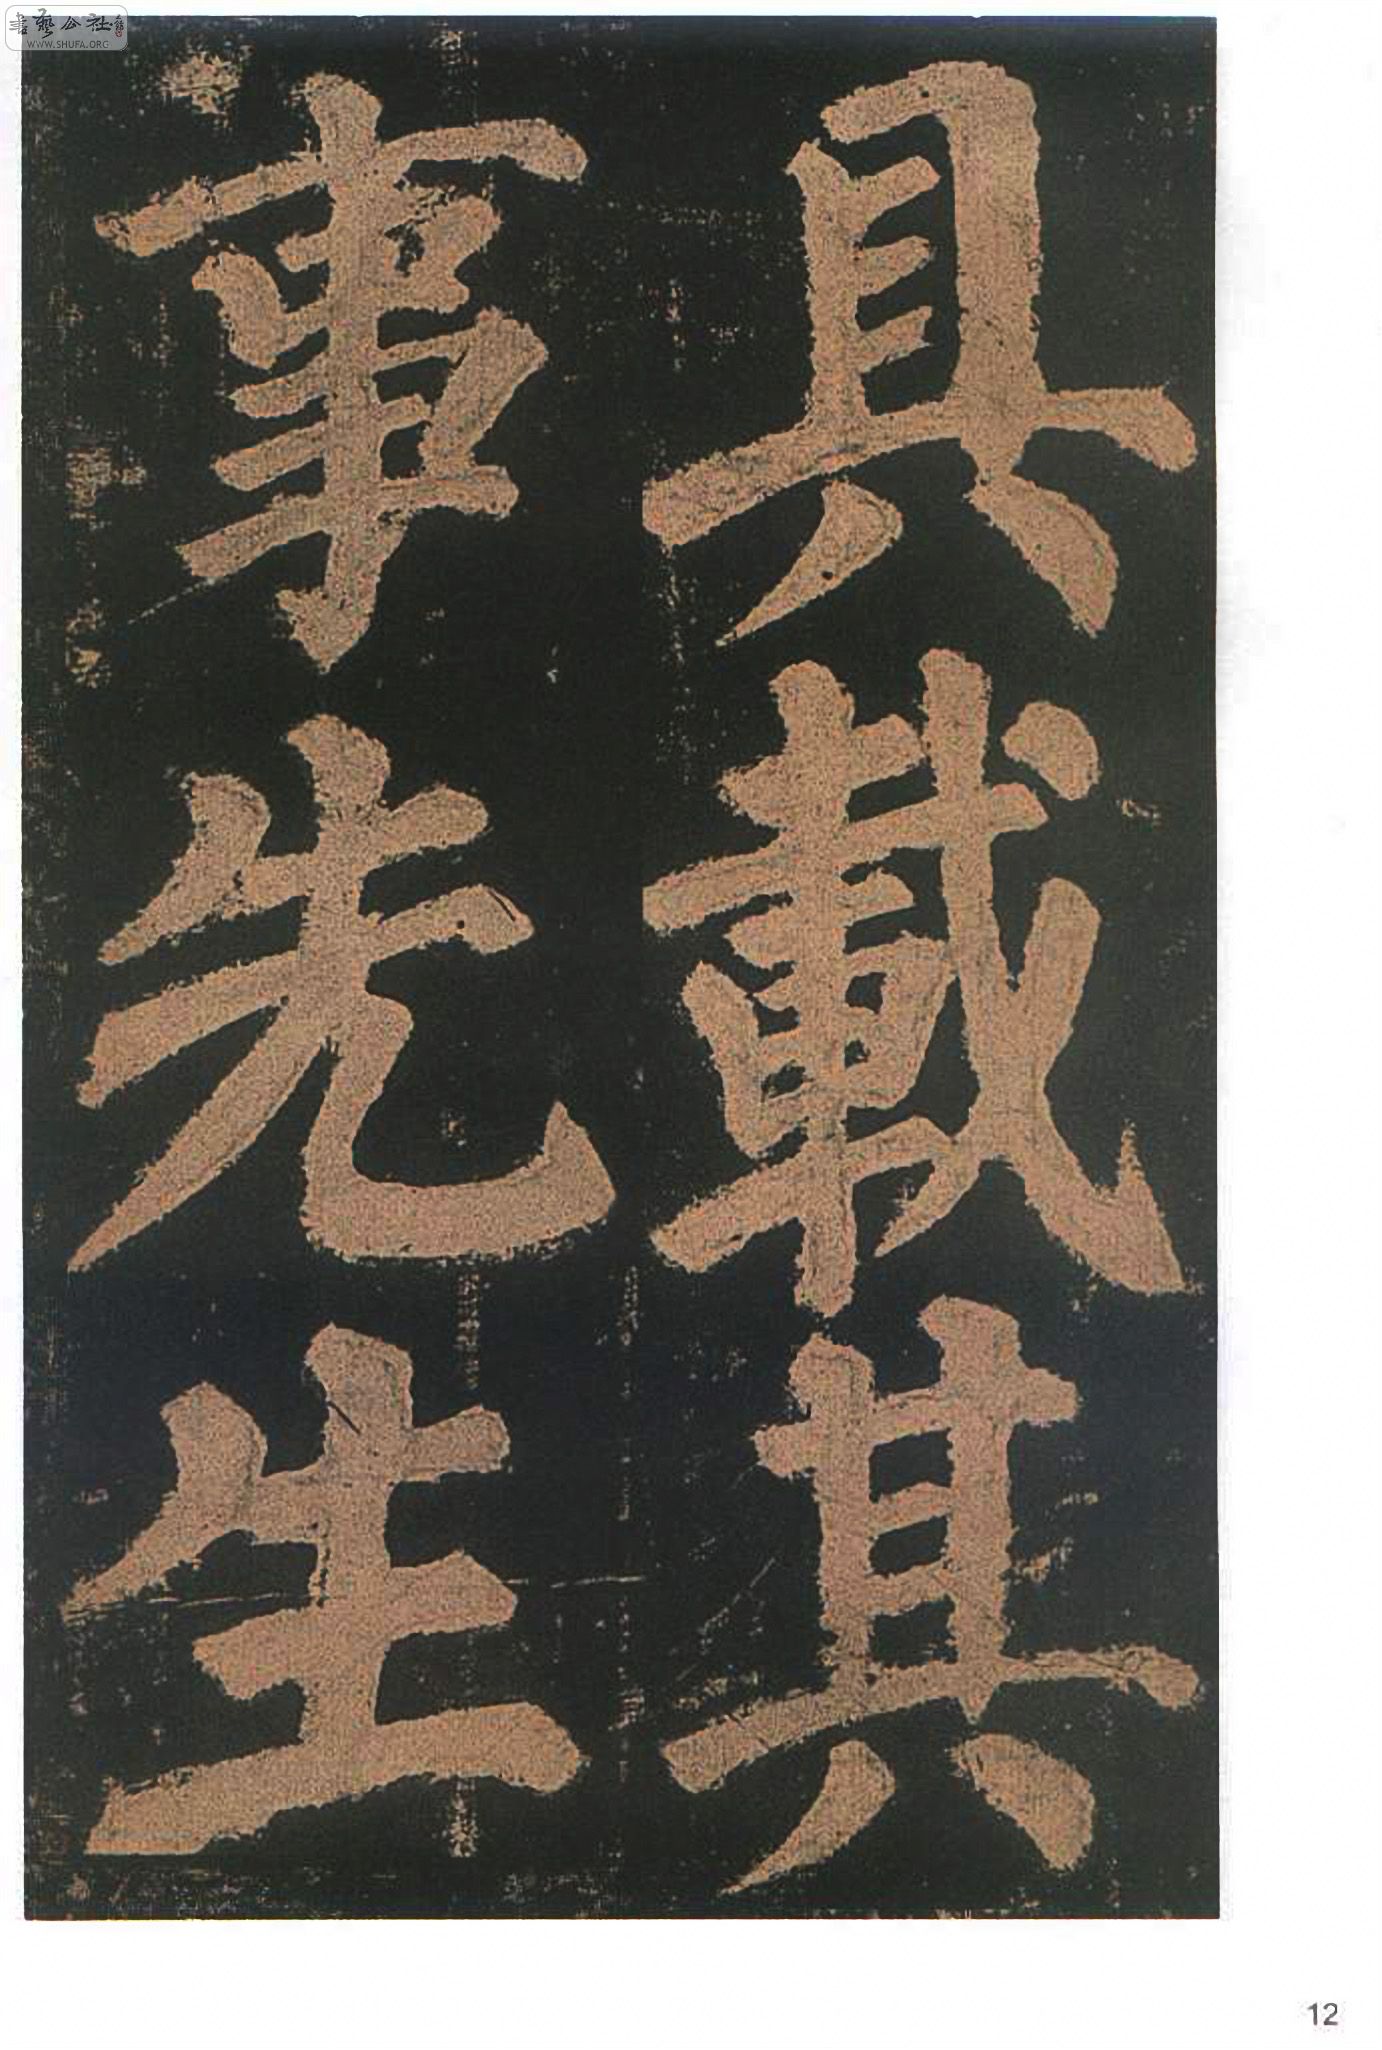 書藝公社
WWW.SHUFA.ORG
具載其
事先生
12